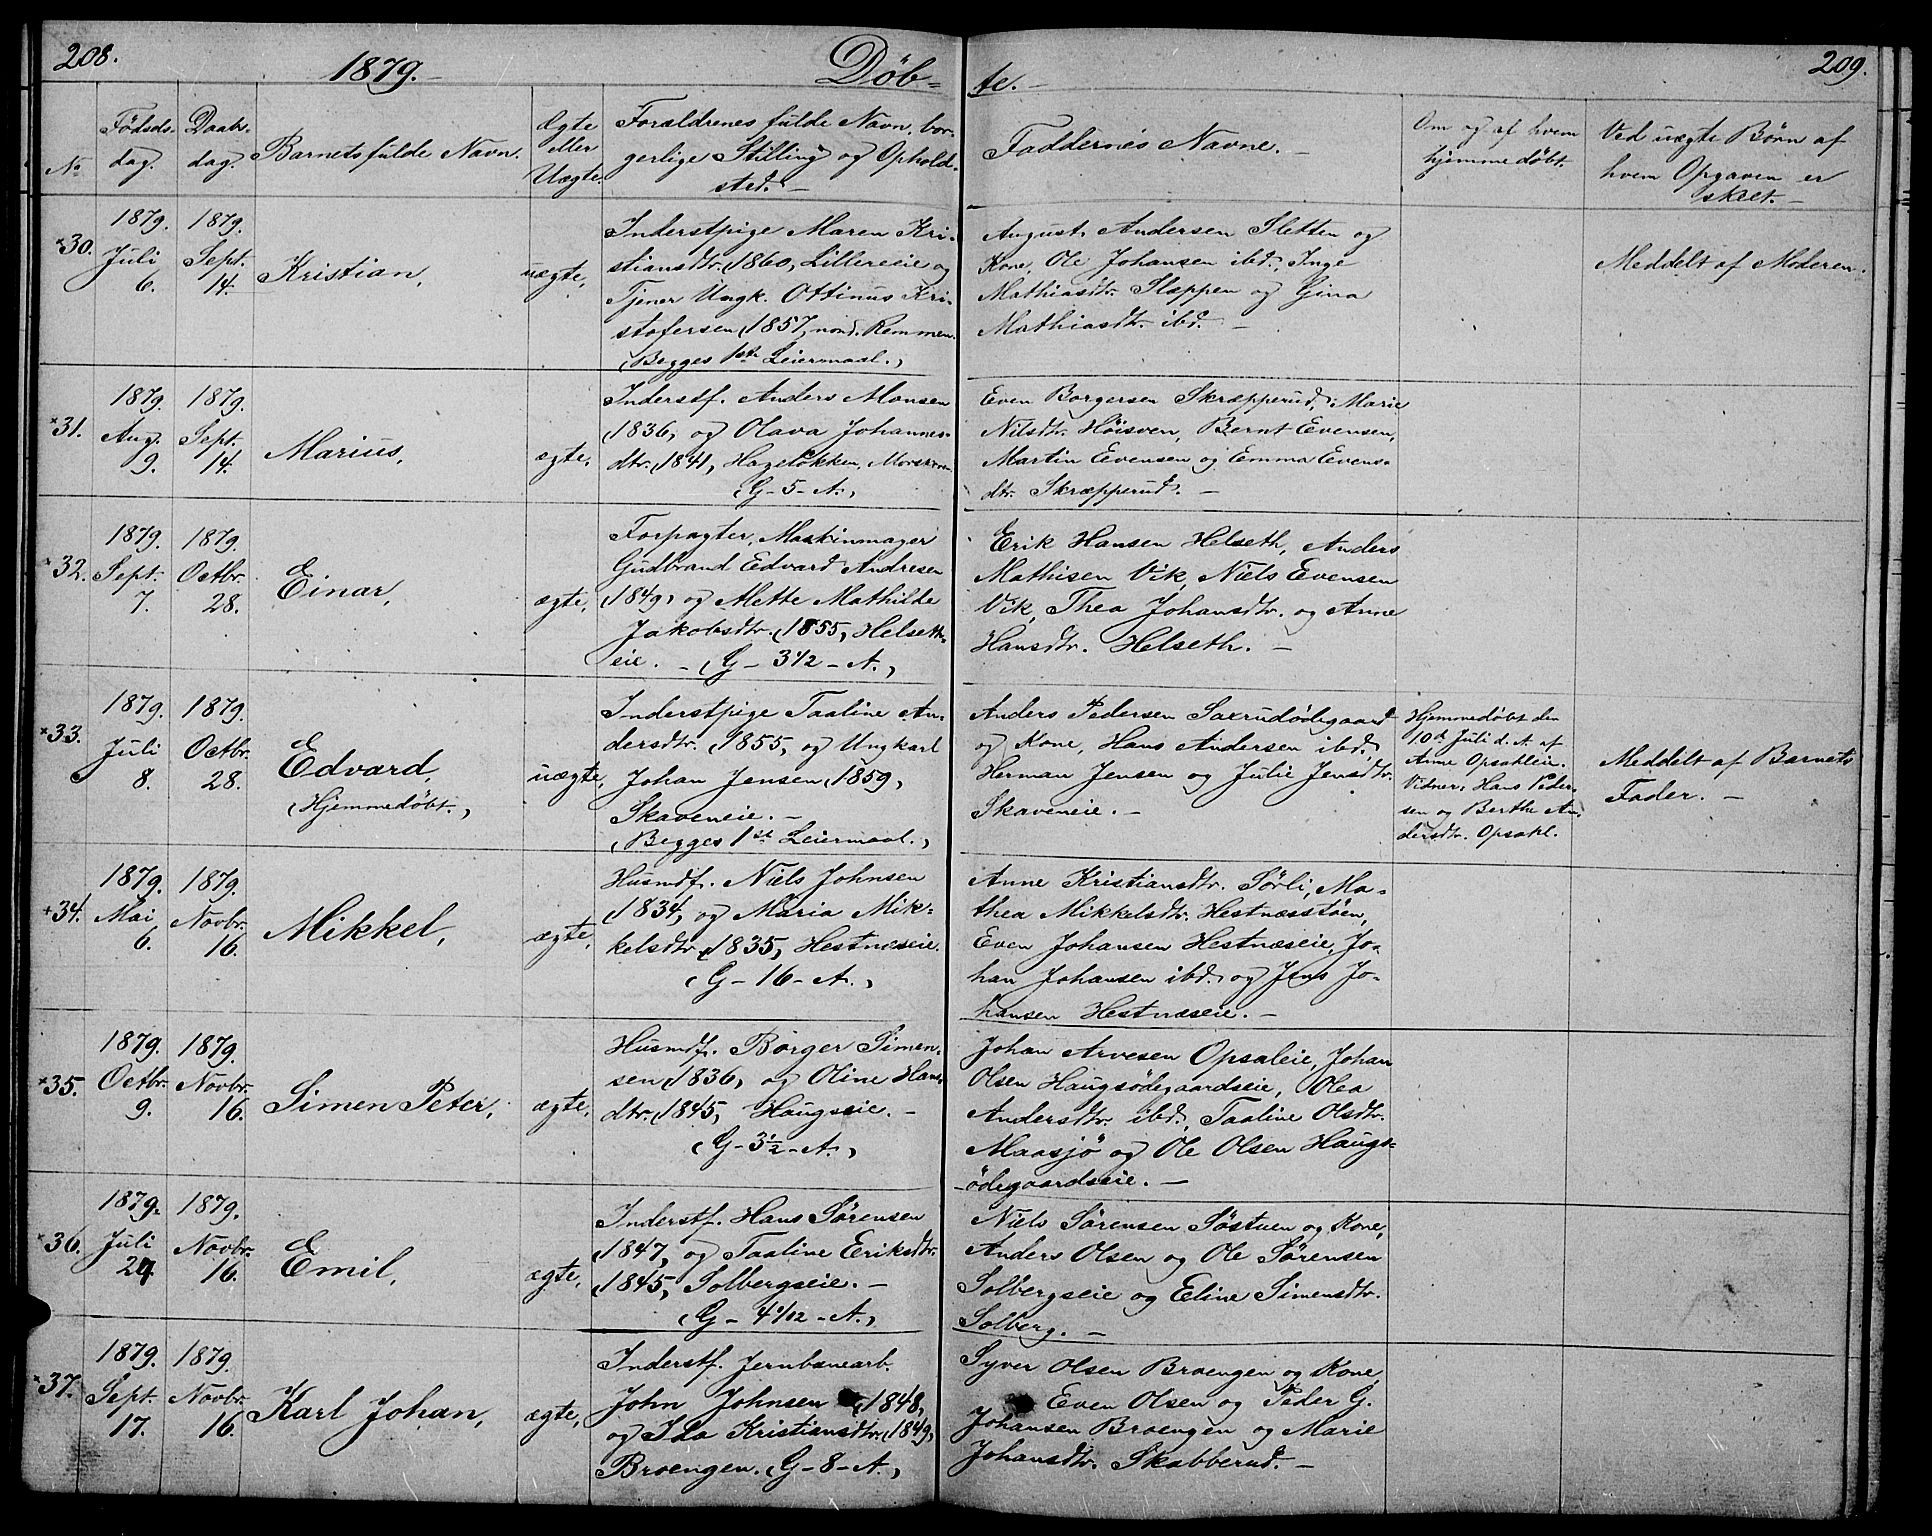 208.
1879.
Døb-
te.
209.
No
Fødsels-
dag.
Daabs-
dag.
Barnets fulde Navn.
Ægte
eller
Uægte.
Forældrenes fulde Navn, bor-
gerlige Stilling og Ophold-
sted. -
Faddernes Navne. -
Om og af hvem
hjemmedøbt.
Ved uægte Børn af
hvem Opgaven er
skeet. -
×30.
1879.
Juli
6.
1879.
Sept.
14.
Kristian,
uægte,
Inderstpige Maren Kri-
stiansdtr. (1860, Lillereeie og
Tjener Ungk. Ottinus Kri-
stofersen (1857, nord. Remmen.
(Begges 1st Leiermaal.)
August Andersen Sletten og
Kone, Ole Johansen ibd., Inge
Mathiasdtr. Slæppen og Gina
Mathiasdtr. ibd. -
Meddelt af Moderen.
×31.
1879.
Aug.
9.
1879.
Sept.
14.
Marius,
ægte,
Inderstf. Anders Monsen
(1836, og Olava Johannes-
dtr. (1841, Hageløkken,
(G - 5 - A.)
Even Borgersen Skræpperud, Marie
Nilsdtr. Høisveen, Bernt Evensen,
Martin Evensen og Emma Evens-
dtr. Skræpperud. -
×32.
1879.
Sept.
7.
1879.
Octbr.
28.
Einar,
ægte,
Forpagter, Maskinmager
Gudbrand Edvard Andresen
(1849, og Mette Mathilde
Jakobsdtr. (1855, Helseth-
eie. - (G - 3 1/2 - A.)
Erik Hansen Helseth, Anders
Mathisen Vik, Niels Evensen
Vik, Thea Johansdtr. og Anne
Hansdtr. Helseth. -
×33.
1879.
Juli
8.
1879.
Octbr.
28.
Edvard,
(Hjemmedøbt.)
uægte,
Inderstpige Taaline An-
dersdtr. (1855, og Ungkarl
Johan Jensen (1859,
Skaveneie. -
(Begges 1st Leiermaal.)
Anders Pedersen Saxrudødegaard
og Kone, Hans Andersen ibd.,
Herman Jensen og Julie Jensdtr.
Skaveneie. -
Hjemmedøbt den
10de Juli d. A. af
Anne Opsakleie.
Vidner: Hans Peder-
sen og Berthe An-
dersdtr. Opsakl.
Meddelt af Barnets
Fader. -
+34.
1879.
Mai
6.
1879.
Novbr.
16.
Mikkel,
ægte,
Husmdf. Niels Johnsen
(1834, og Maria Mik-
kelsdtr. (1835, Hestnæseie.
(G - 16 - A.)
Anne Kristiansdtr. Sørli, Ma-
thea Mikkelsdtr. Hestnæsstøen,
Even Johansen Hestnæseie, Jo-
han Johansen ibd. og Jens Jo-
hansen Hestnæseie. -
×35.
1879.
Octbr.
9.
1879.
Novbr.
16.
Simen Peter,
ægte,
Husmdf. Børger Simen-
sen (1836, og Oline Hans-
dtr. (1845, Haugseie. -
(G - 3 1/2 - A.)
Johan Arvesen Opsaleie, Johan
Olsen Haugsødegaardseie, Olea
Andersdtr. ibd., Taaline Olsdtr.
Maasjø og Ole Olsen Haugs-
ødegaardseie. -
×36.
1879.
Juli
24.
1879.
Novbr.
16.
Emil,
ægte,
Inderstf. Hans Sørensen
(1847, og Taaline Eriksdtr.
(1845, Solbergseie. -
(G - 4 1/12 - A.)
Niels Sørensen Søstuen og Kone,
Anders Olsen og Ole Sørensen
Solbergseie og Eline Simensdtr.
Solberg. -
×37.
1879.
Sept.
17.
1879.
Novbr.
16.
Karl Johan,
ægte,
Inderstf. Jernbanearb.
John Johnsen (1848,
og Ida Kristiansdtr. (1849,
Broengen. (G - 8 - A.)
Syver Olsen Broengen og Kone,
Even Olsen og Peder G.
Johansen Broengen og Marie
Johansdtr. Skabberud. -